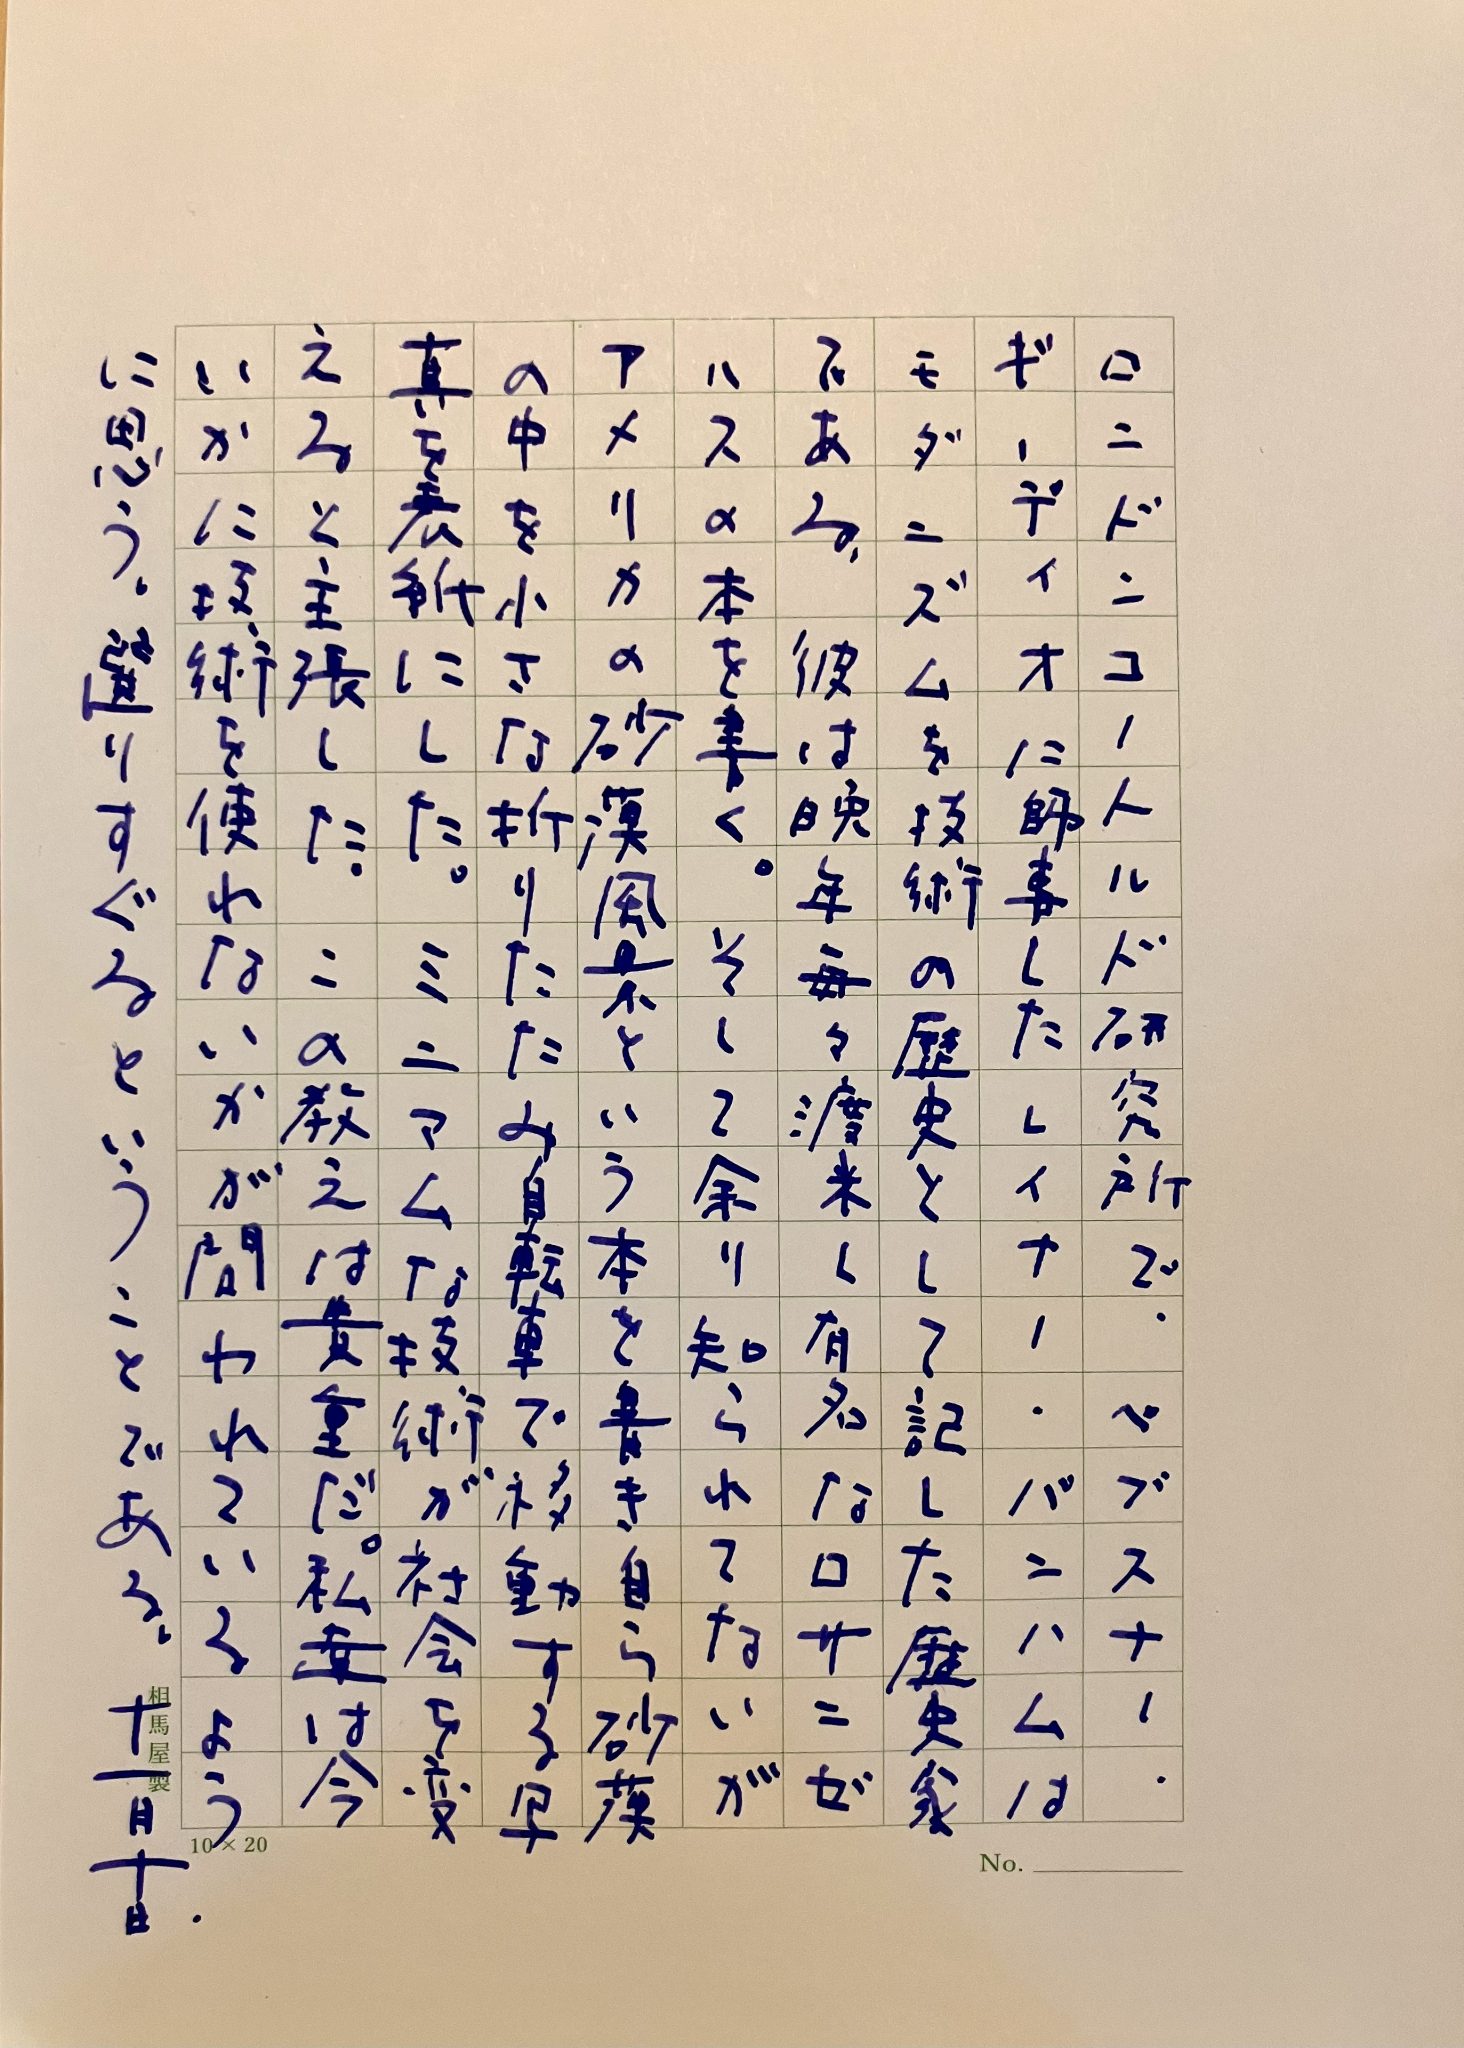 ロンドンコートールド研究所で・ペブスナー・
ギーディオンに師事したレイナー・バンハムは
モダニズムを技術の歴史として記した歴史家
である。彼は晩年毎々渡米し有名なロサンゼ
ルスの本を書く。そして余り知られてないが
アメリカの砂漠風景という本を書き自ら砂漠
の中を小さな折りたたみ自転車で移動する写
真を表紙にした。ミニマムな技術が社会を変
えると主張した。この教えは貴重だ。私達は今
いかに技術を使れないかが問われているよう
に思う。選りすぐるということである。十一月十日.
相馬屋製
10×20
No.